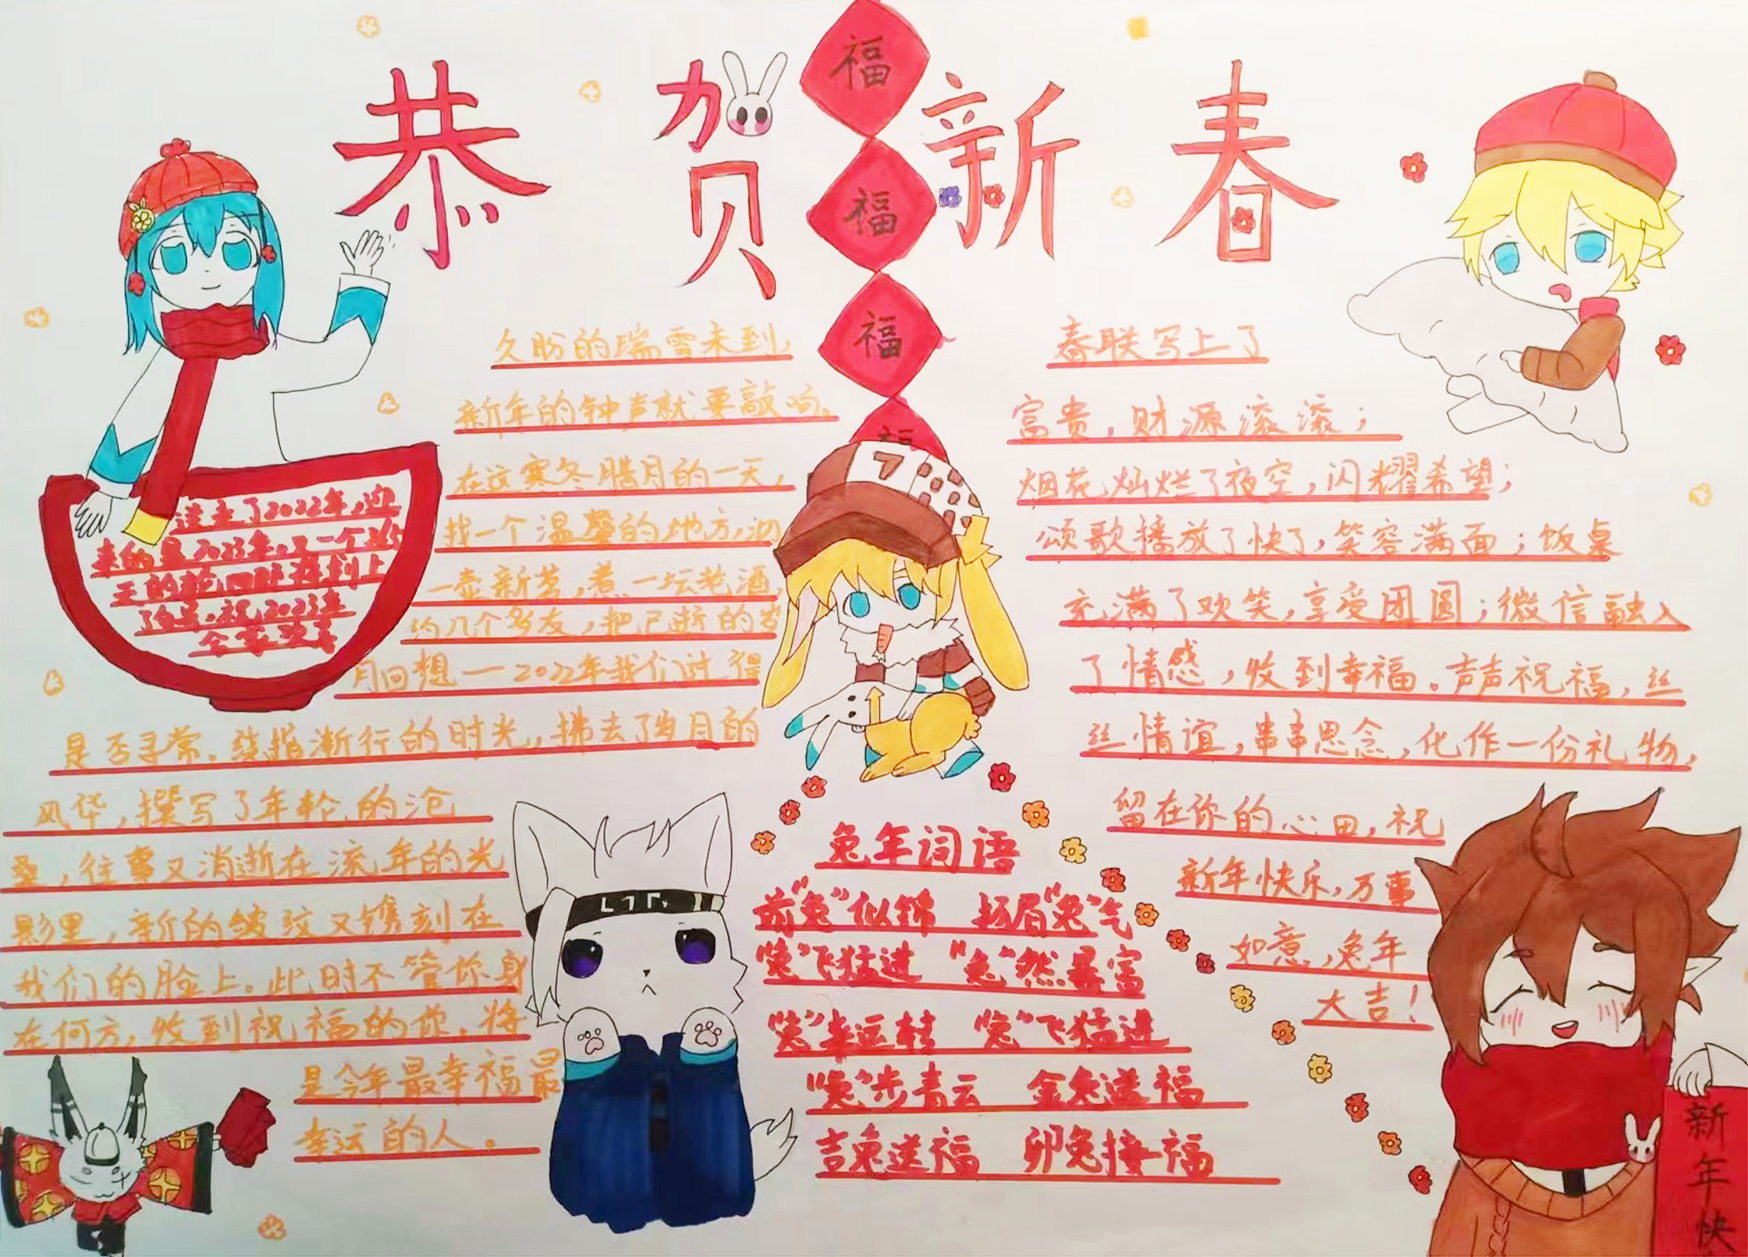 恭贺新春
福
福
福
福
送走了2022年,迎
来的是2023年,又一个
王的
了 祝2023年
全家
久盼的瑞雪未到,
新年的钟声就要敲响。
在这寒冬腊月的一天,
找一个温馨的地方,沏
一壶新茗,煮一坛老酒
约几个多友,把已逝的岁
月回想一一2022年我们过得
是否寻常。绕指渐行的时光,拂去了岁月的
风华,撰写了年轮的沧
桑,往事又消逝在流年的光
影里,新的皱纹又镌刻在
我们的脸上。此时不管你身
在何方,收到祝福的你,将
是今年最幸福最
幸运的人。
7
兔年词语
前“兔”似锦 扬眉“兔”气
“兔”飞猛进 “兔”然暴富
“兔”幸运转 “兔”飞猛进
“兔”步青云 金兔送福
吉兔送福 卯兔接福
春联写上了
富贵,财源滚滚;
烟花灿烂了夜空,闪耀希望;
颂歌播放了快了,笑容满面;饭桌
充满了欢笑,享受团圆;微信融入
了情感,收到幸福。声声祝福,丝
丝情谊,串串思念,化作一份礼物,
留在你的心田,祝
新年快乐,万事
如意,兔年
大吉!
新年快